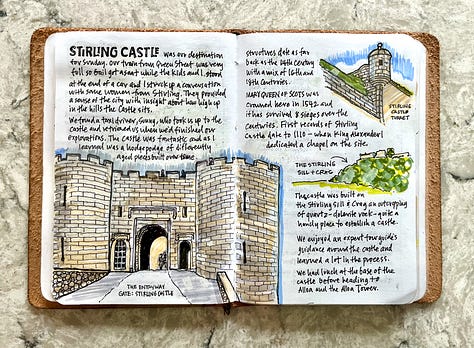 STIRLING CASTLE was our destination
for Sunday. Our train from Queen Street was very
full so Gail got a seat while the kids and I stood
at the end of a car and I struck up a conversation
with some women from Stirling. They provided
a sense of the city with insight about how high up
in the hills the Castle sits.
We found a taxi driver, who took us up to the
Castle and retrieved us when we'd finished our
explorations. The castle was fantastic and as I
learned was a hodgepodge of differently
aged pieces built over time.
THE ENTRYWAY
GATE: STIRLING CASTLE
structures date as far
back as the 14th century
with a mix of 16th and
18th Centuries.
MARY QUEEN OF SCOTS was
crowned here in 1542 and
it has survived 8 sieges over the
Centuries. First records of Stirling
Castle date to 1110 - when King Alexander I
dedicated a chapel on the site.
STIRLING
CASTLE
TURRET
THE STIRLING
SILL & CRAG
The castle was built on
the Stirling Sill & Crag an outcropping
of quartz-dolerite rock - quite a
handy place to establish a castle.
We enjoyed an expert tour guide's
guidance around the castle and
learned a lot in the process.
We had lunch at the base of the
castle before heading to
Alloa and the Alloa Tower.